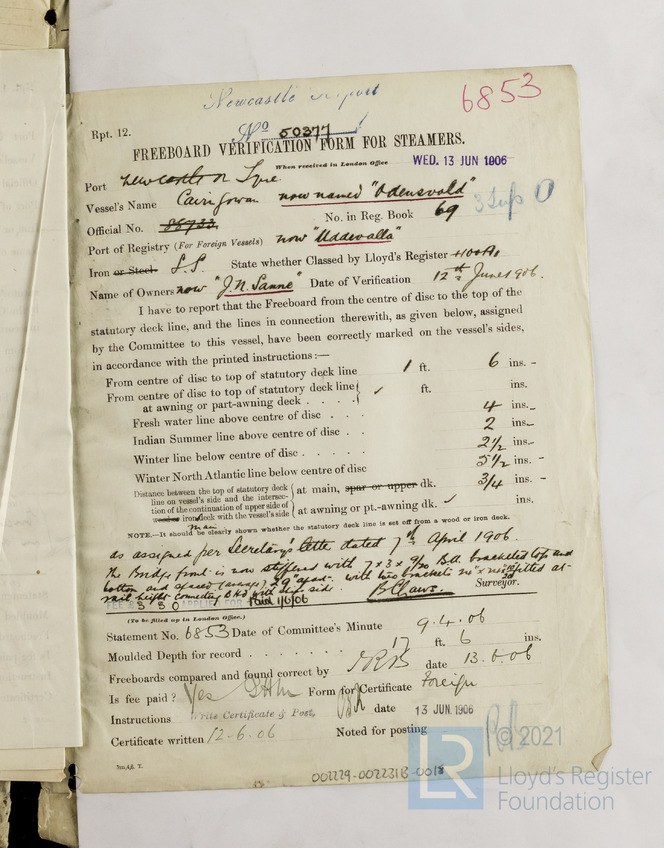 Newcastle Report
6853
Rpt. 12.
No 50377
FREEBOARD VERIFICATION FORM FOR STEAMERS.
When received in London Office WED. 13 JUN 1906
Port Newcastle on Tyne
Vessel's Name Cairngowan now named "Odensvold"
Official No. No. in Reg. Book 69
Port of Registry (For Foreign Vessels) now "Uddevalla"
Iron or Steel S.S. State whether Classed by Lloyd's Register +100A1
Name of Owners now "J.N. Sanne" Date of Verification 12th June 1906.
I have to report that the Freeboard from the centre of disc to the top of the
statutory deck line, and the lines in connection therewith, as given below, assigned
by the Committee to this vessel, have been correctly marked on the vessel's sides,
in accordance with the printed instructions:—
From centre of disc to top of statutory deck line 1 ft. 6 ins.
From centre of disc to top of statutory deck line at awning or part-awning deck ✓ ft. ins.
Fresh water line above centre of disc 4 ins.
Indian Summer line above centre of disc 2 ins.
Winter line below centre of disc 2½ ins.
Winter North Atlantic line below centre of disc 5½ ins.
Distance between the top of statutory deck line on vessel's side and the intersection of the continuation of upper side of wooden iron main deck with the vessel's side
at main, spar or upper dk. 3/4 ins.
at awning or pt.-awning dk. ✓ ins.
NOTE.—It should be clearly shown whether the statutory deck line is set off from a wood or iron deck.
as assigned per Secretary's letter dated 7th April 1906.
The Bridge front is now stiffened with 7 x 3 x 9/20 B.A. bracketed top and
bottom and spaced (average) 29" apart. with two brackets fitted at
rail height connecting BHd with ship's side.
FEE £ 3 3 0 APPLIED FOR Paid 1/6/06
Surveyor.
(To be filled up in London Office.)
Statement No. 6853 Date of Committee's Minute 9.4.06
Moulded Depth for record 17 ft. 6 ins.
Freeboards compared and found correct by date 13.6.06
Is fee paid? Yes Form for Certificate Foreign
Instructions Write Certificate & Post. date 13 JUN. 1906
Certificate written 12-6-06 Noted for posting
5m,4,6. T.
002229-002231B-0018
LR
© 2021
Lloyd's Register
Foundation